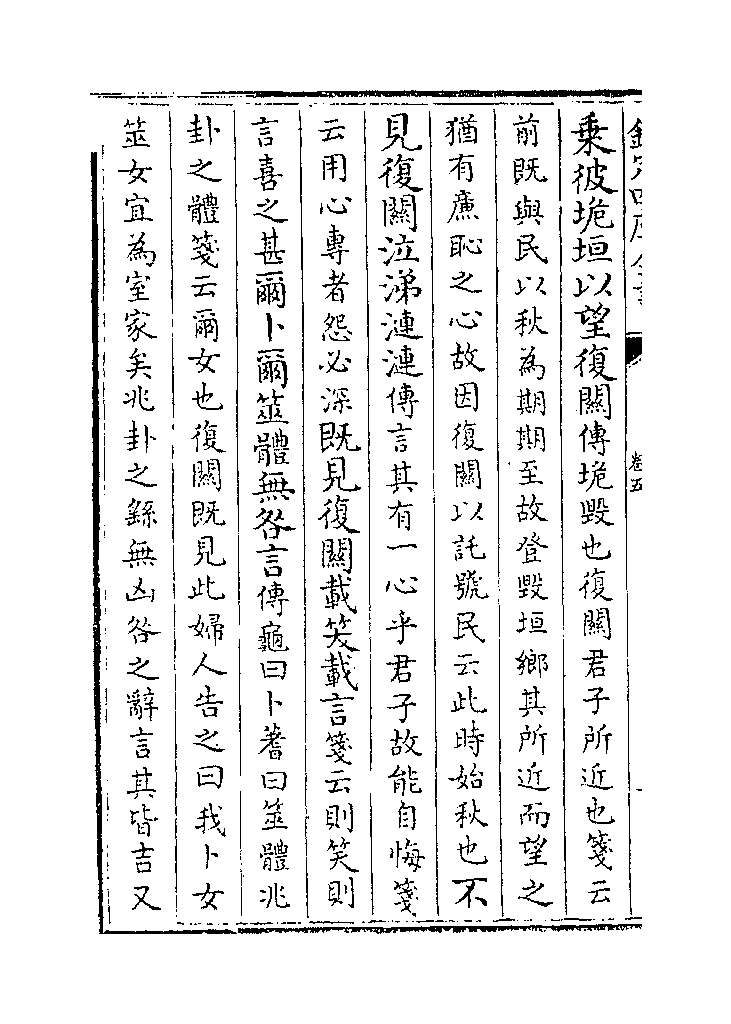 欽定四庫全書
卷五
乗彼垝垣以望復關傳垝毀也復關君子所近也箋云
前既與民以秋為期期至故登毀垣鄉其所近而望之
猶有亷恥之心故因復關以託號民云此時始秋也不
見復關泣涕漣漣傳言其有一心乎君子故能自悔箋
云用心專者怨必深既見復關載笑載言箋云則笑則
言喜之甚爾卜爾筮體無咎言傳龜曰卜蓍曰筮體兆
卦之體箋云爾女也復關既見此婦人告之曰我卜女
筮女宜為室家矣兆卦之繇無凶咎之辭言其皆吉又